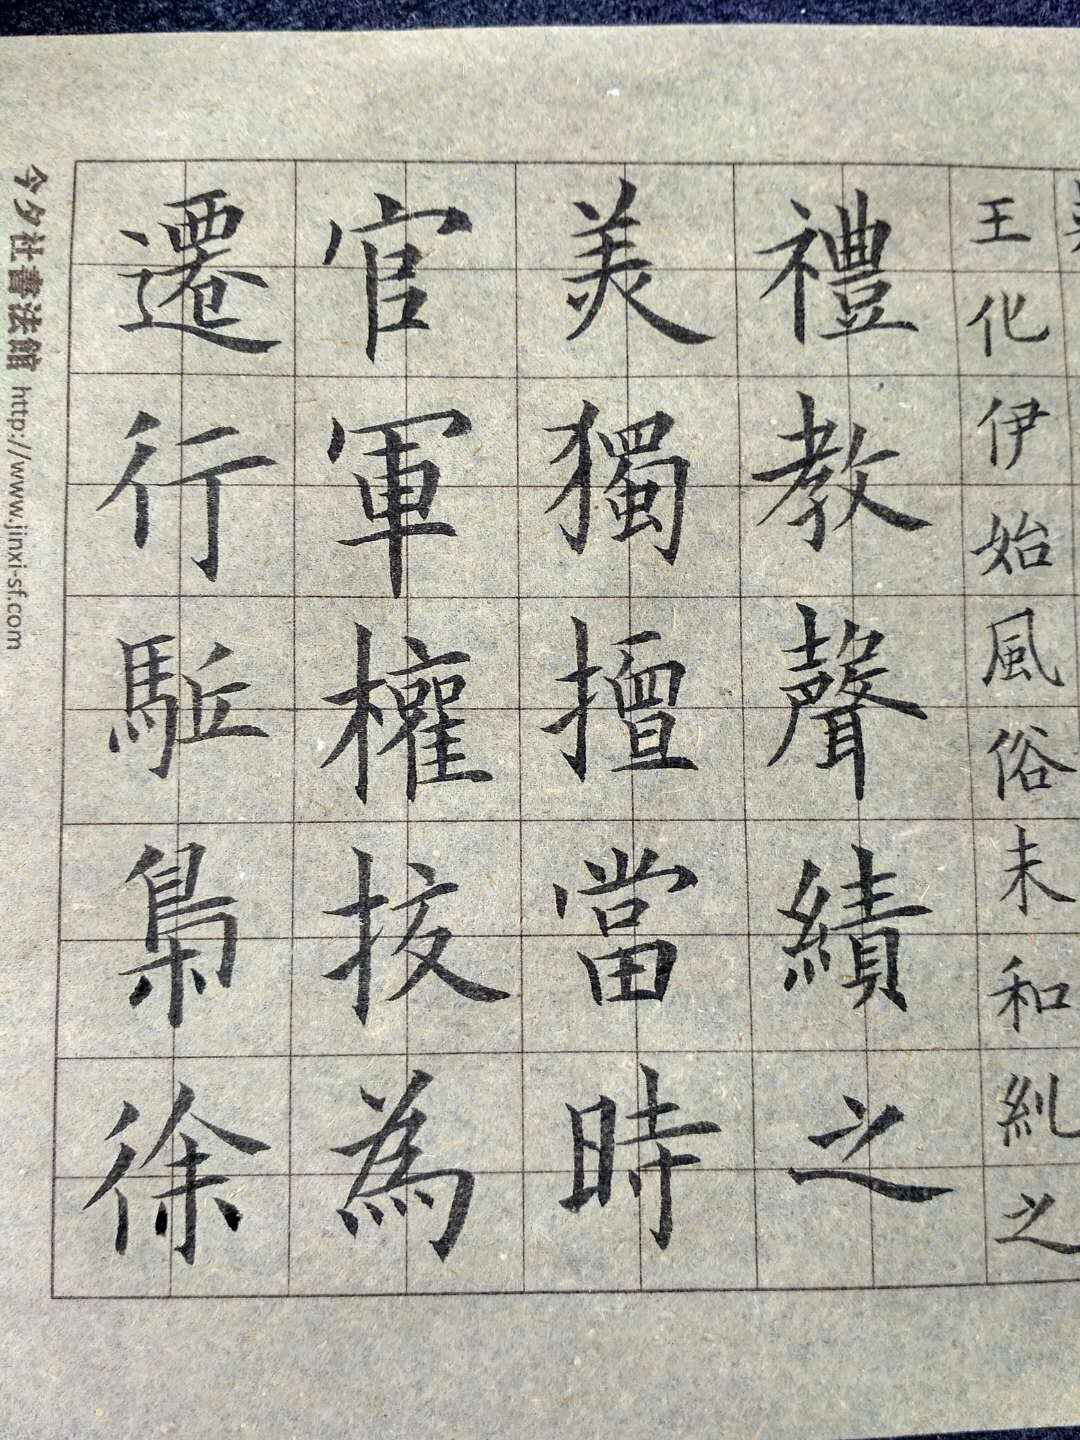 王化伊始風俗未和糾之
禮教聲績之
美獨擅當時
官軍權拔為
遷行駈梟徐
今夕社書法館 http://www.jinxi-sf.com